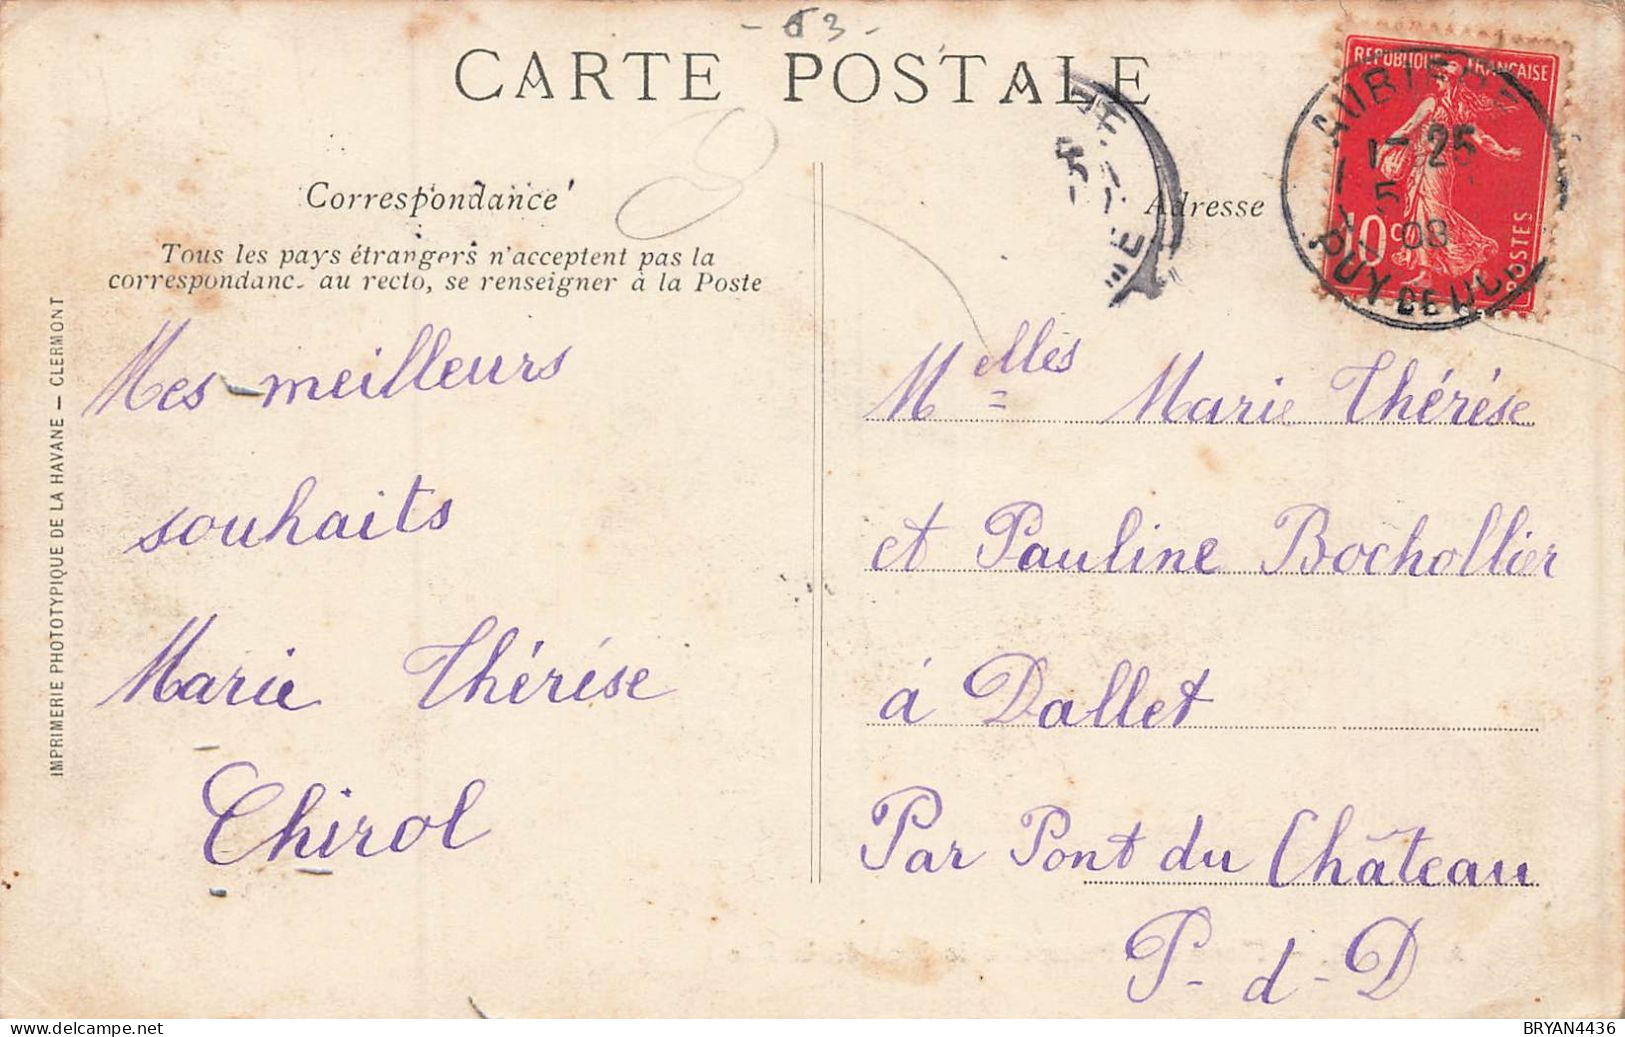 - 63 -
CARTE POSTALE
Correspondance
Tous les pays étrangers n'acceptent pas la
correspondanc. au recto, se renseigner à la Poste
IMPRIMERIE PHOTOTYPIQUE DE LA HAVANE — CLERMONT
Mes meilleurs
souhaits
Marie Thérése
Chirol
Adresse
REPUBLIQUE FRANÇAISE
10 c
POSTES
1 - 25
5
08
PUY DE
Melles Marie Thérése
et Pauline Bochollier
à Dallet
Par Pont du Château
P - d - D
BRYAN4436